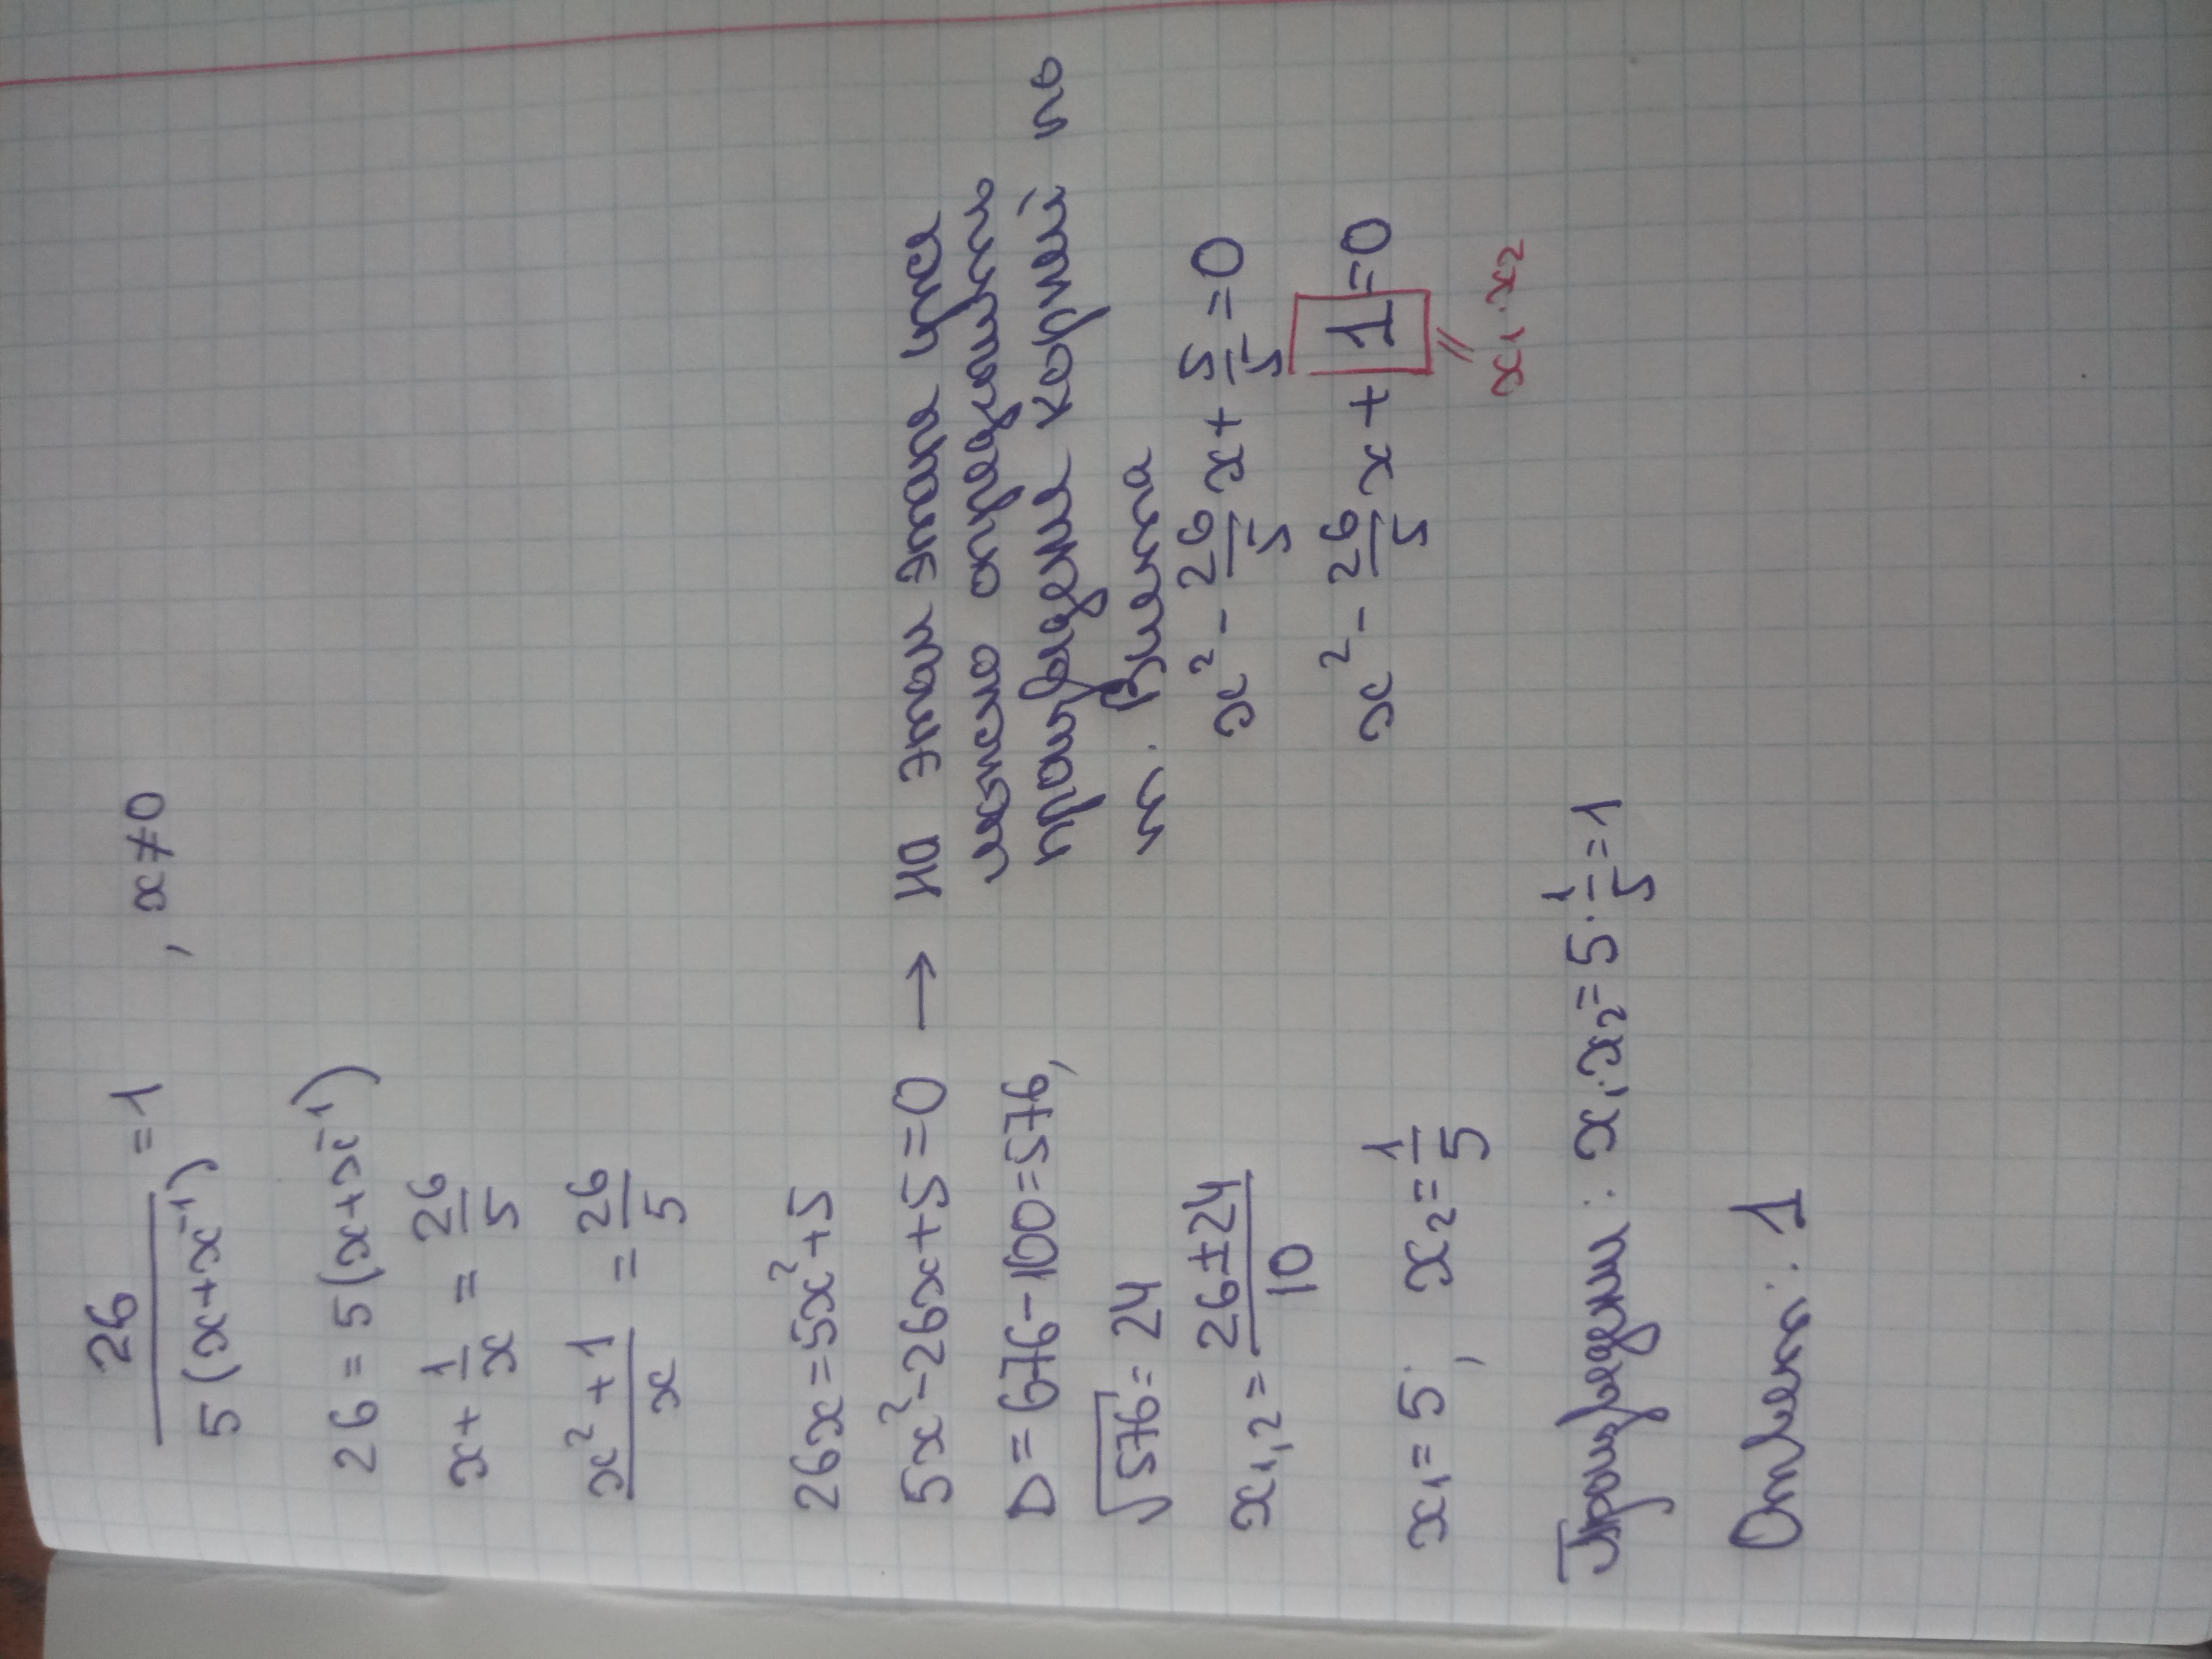 26/(5(x+x⁻¹)) = 1 , x≠0
26 = 5(x+x⁻¹)
x + 1/x = 26/5
(x²+1)/x = 26/5
26x = 5x²+5
5x²-26x+5=0 → на этом этапе уже
можно определить
произведение корней по
т. Виета
x² - 26/5 x + 5/5 = 0
x² - 26/5 x + 1 = 0
||
x₁·x₂
D = 676-100=576,
√576 = 24
x₁,₂ = (26±24)/10
x₁ = 5; x₂ = 1/5
Произведем: x₁·x₂ = 5·1/5 = 1
Ответ: 1